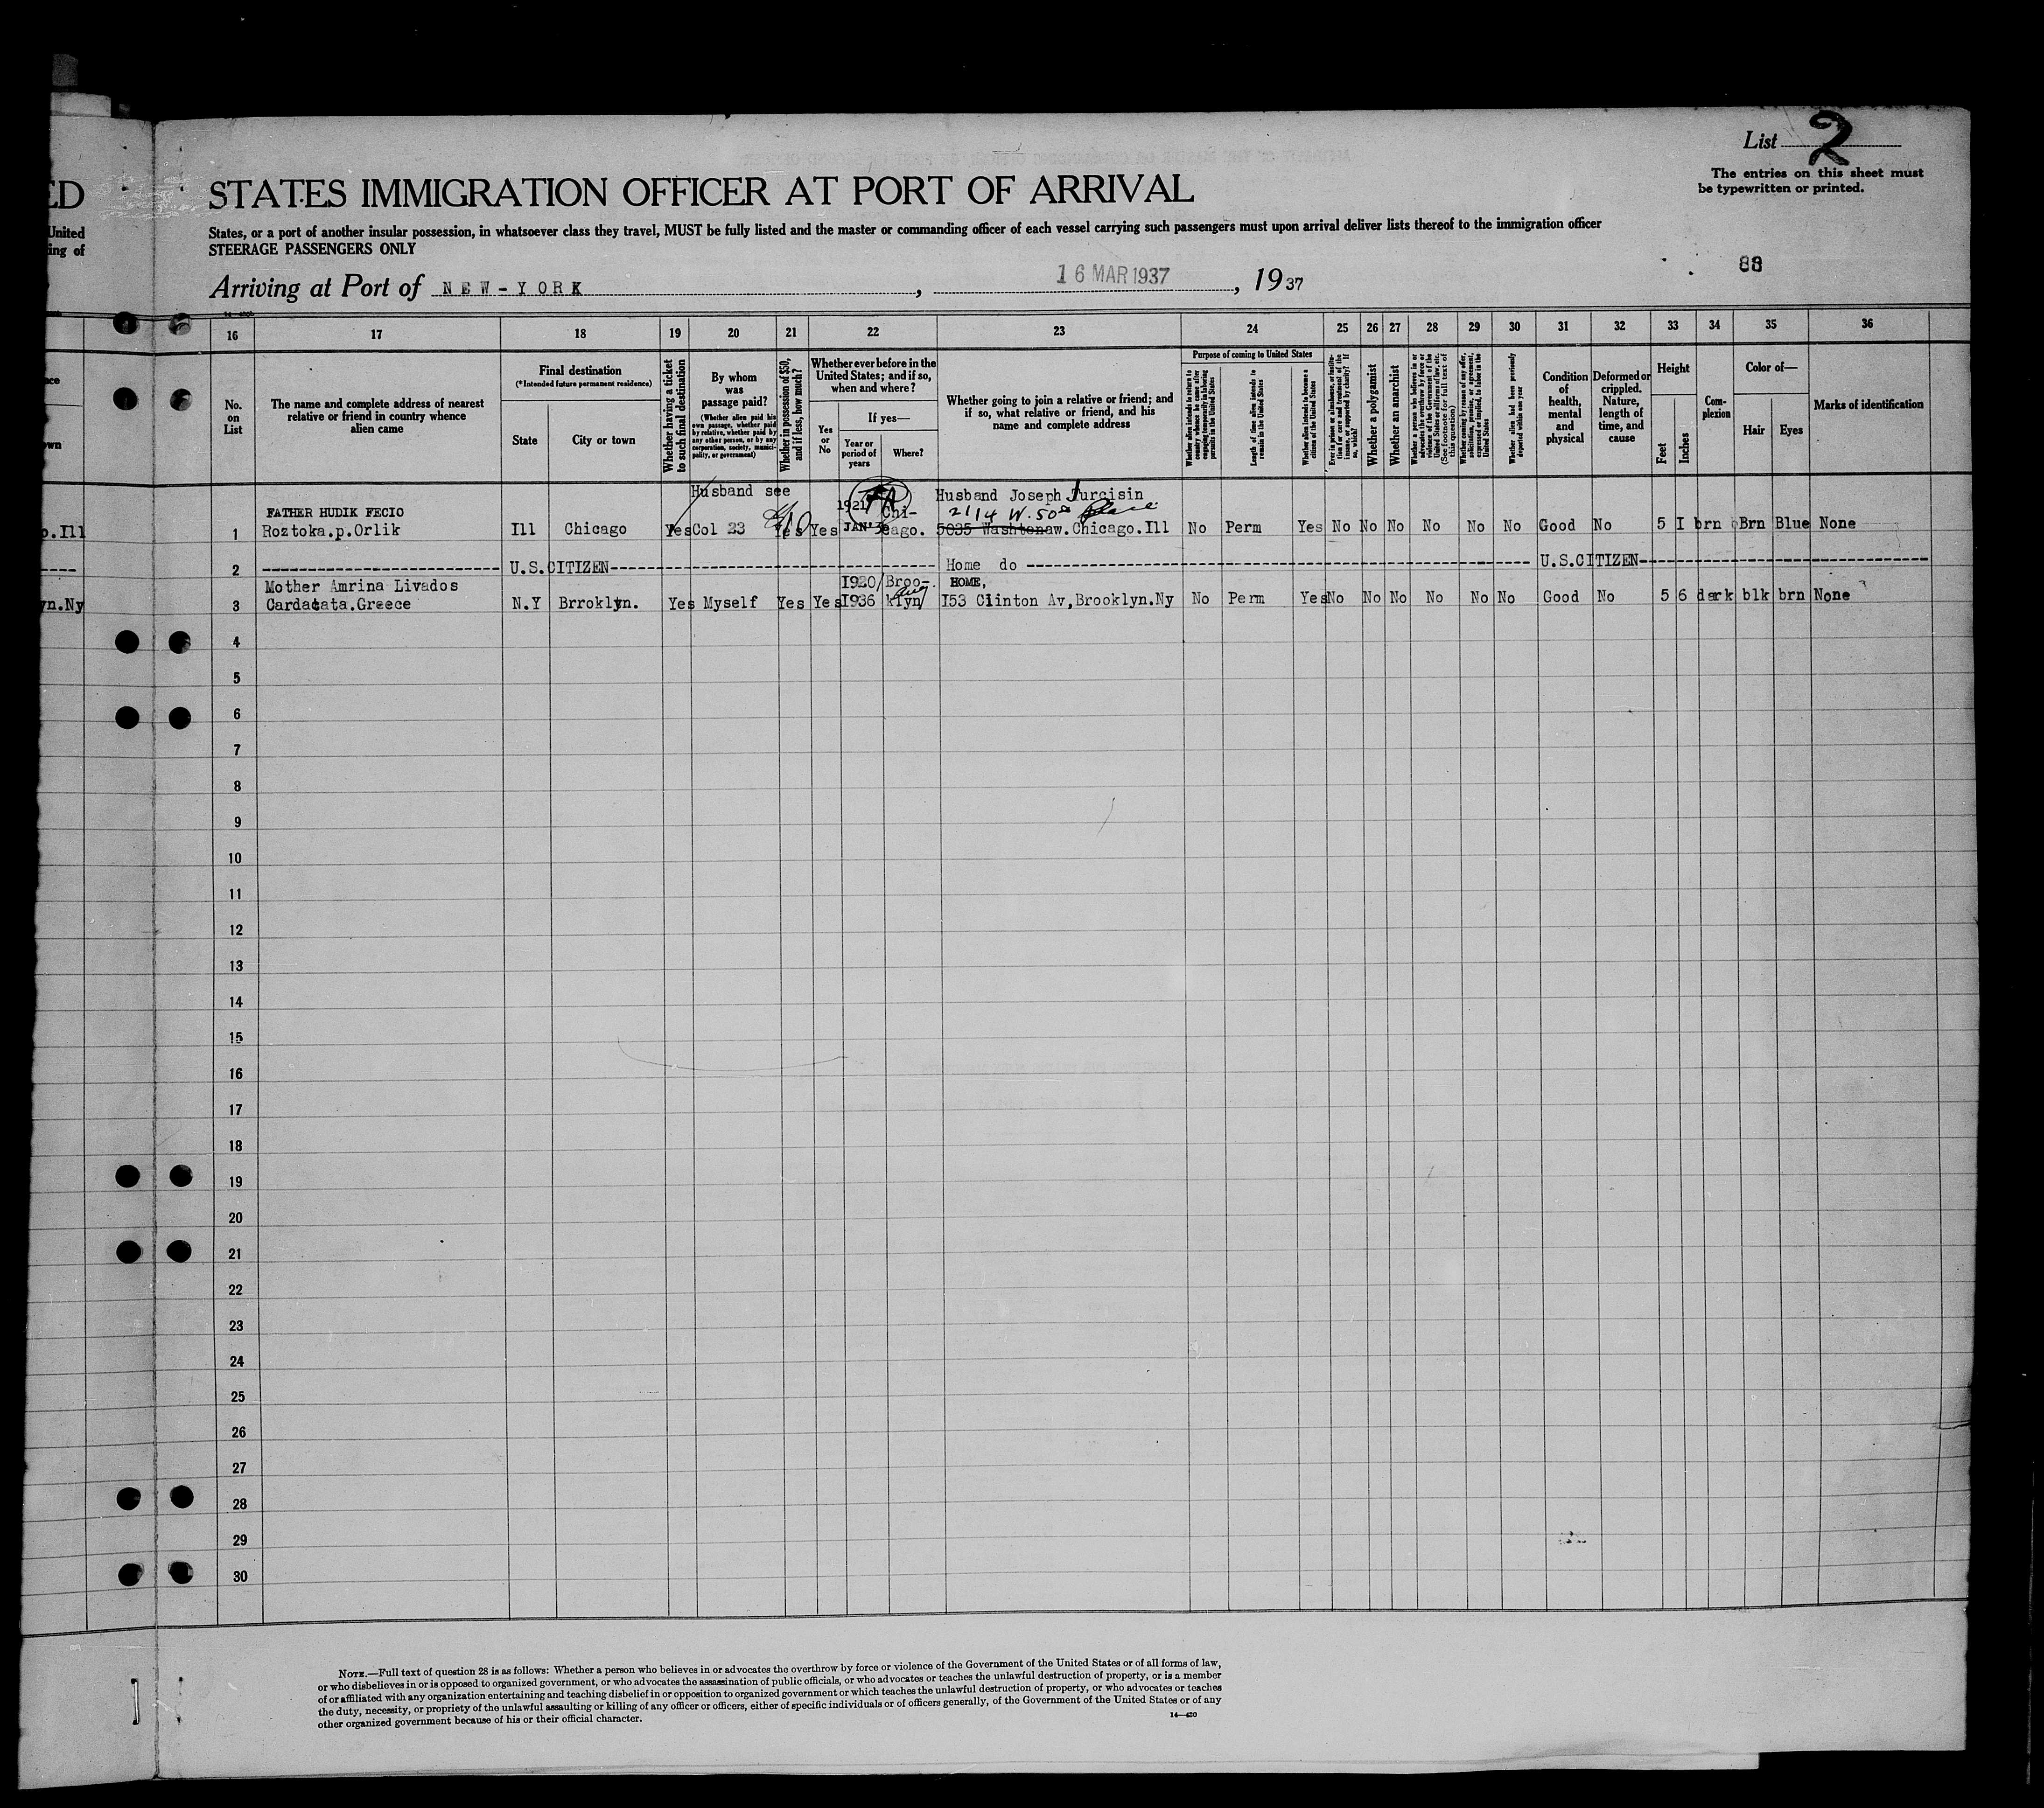 List 2
The entries on this sheet must
be typewritten or printed.
ED
STATES IMMIGRATION OFFICER AT PORT OF ARRIVAL
United
ing of
States, or a port of another insular possession, in whatsoever class they travel, MUST be fully listed and the master or commanding officer of each vessel carrying such passengers must upon arrival deliver lists thereof to the immigration officer
STEERAGE PASSENGERS ONLY
88
Arriving at Port of NEW-YORK, 16 MAR 1937, 1937
16 17 18 19 20 21 22 23 24 25 26 27 28 29 30 31 32 33 34 35 36
No. on List
The name and complete address of nearest relative or friend in country whence alien came
Final destination
(*Intended future permanent residence)
State
City or town
Whether having a ticket to such final destination
By whom was passage paid?
(Whether alien paid his own passage, whether paid by relative, whether paid by any other person, or by any corporation, society, municipality, or government)
Whether in possession of $50, and if less, how much?
Whether ever before in the United States; and if so, when and where?
Yes or No
If yes—
Year or period of years
Where?
Whether going to join a relative or friend; and if so, what relative or friend, and his name and complete address
Purpose of coming to United States
Whether alien intends to return to country whence he came after engaging temporarily in laboring pursuits in the United States
Length of time alien intends to remain in the United States
Whether alien intends to become a citizen of the United States
Ever in prison or almshouse, or institution for care and treatment of the insane, or supported by charity? If so, which?
Whether a polygamist
Whether an anarchist
Whether a person who believes in or advocates the overthrow by force or violence of the Government of the United States or all forms of law, etc. (See footnote for full text of this question)
Whether coming by reason of any offer, solicitation, promise, or agreement, expressed or implied, to labor in the United States
Whether alien had been previously deported within one year
Condition of health, mental and physical
Deformed or crippled. Nature, length of time, and cause
Height
Feet
Inches
Complexion
Color of—
Hair
Eyes
Marks of identification
Husband see
1921 Chi-
Husband Joseph Jurcisin
FATHER HUDIK FECIO
2114 W. 50th Place
o.Ill
1 Roztoka.p.Orlik Ill Chicago Yes Col 23 Yes Yes JAN' cago. 5035 Washtenaw.Chicago.Ill No Perm Yes No No No No No No Good No 5 I brn Brn Blue None
2 U.S.CITIZEN Home do U.S.CITIZEN
Mother Amrina Livados I920/ Broo-. HOME,
yn.Ny
3 Cardacata.Greece N.Y Brroklyn. Yes Myself Yes Yes I936 klyn I53 Clinton Av,Brooklyn.Ny No Perm Yes No No No No No No Good No 5 6 dark blk brn None
4
5
6
7
8
9
10
11
12
13
14
15
16
17
18
19
20
21
22
23
24
25
26
27
28
29
30
NOTE.—Full text of question 28 is as follows: Whether a person who believes in or advocates the overthrow by force or violence of the Government of the United States or of all forms of law,
or who disbelieves in or is opposed to organized government, or who advocates the assassination of public officials, or who advocates or teaches the unlawful destruction of property, or is a member
of or affiliated with any organization entertaining and teaching disbelief in or opposition to organized government or which teaches the unlawful destruction of property, or who advocates or teaches
the duty, necessity, or propriety of the unlawful assaulting or killing of any officer or officers, either of specific individuals or of officers generally, of the Government of the United States or of any
other organized government because of his or their official character.
14—420